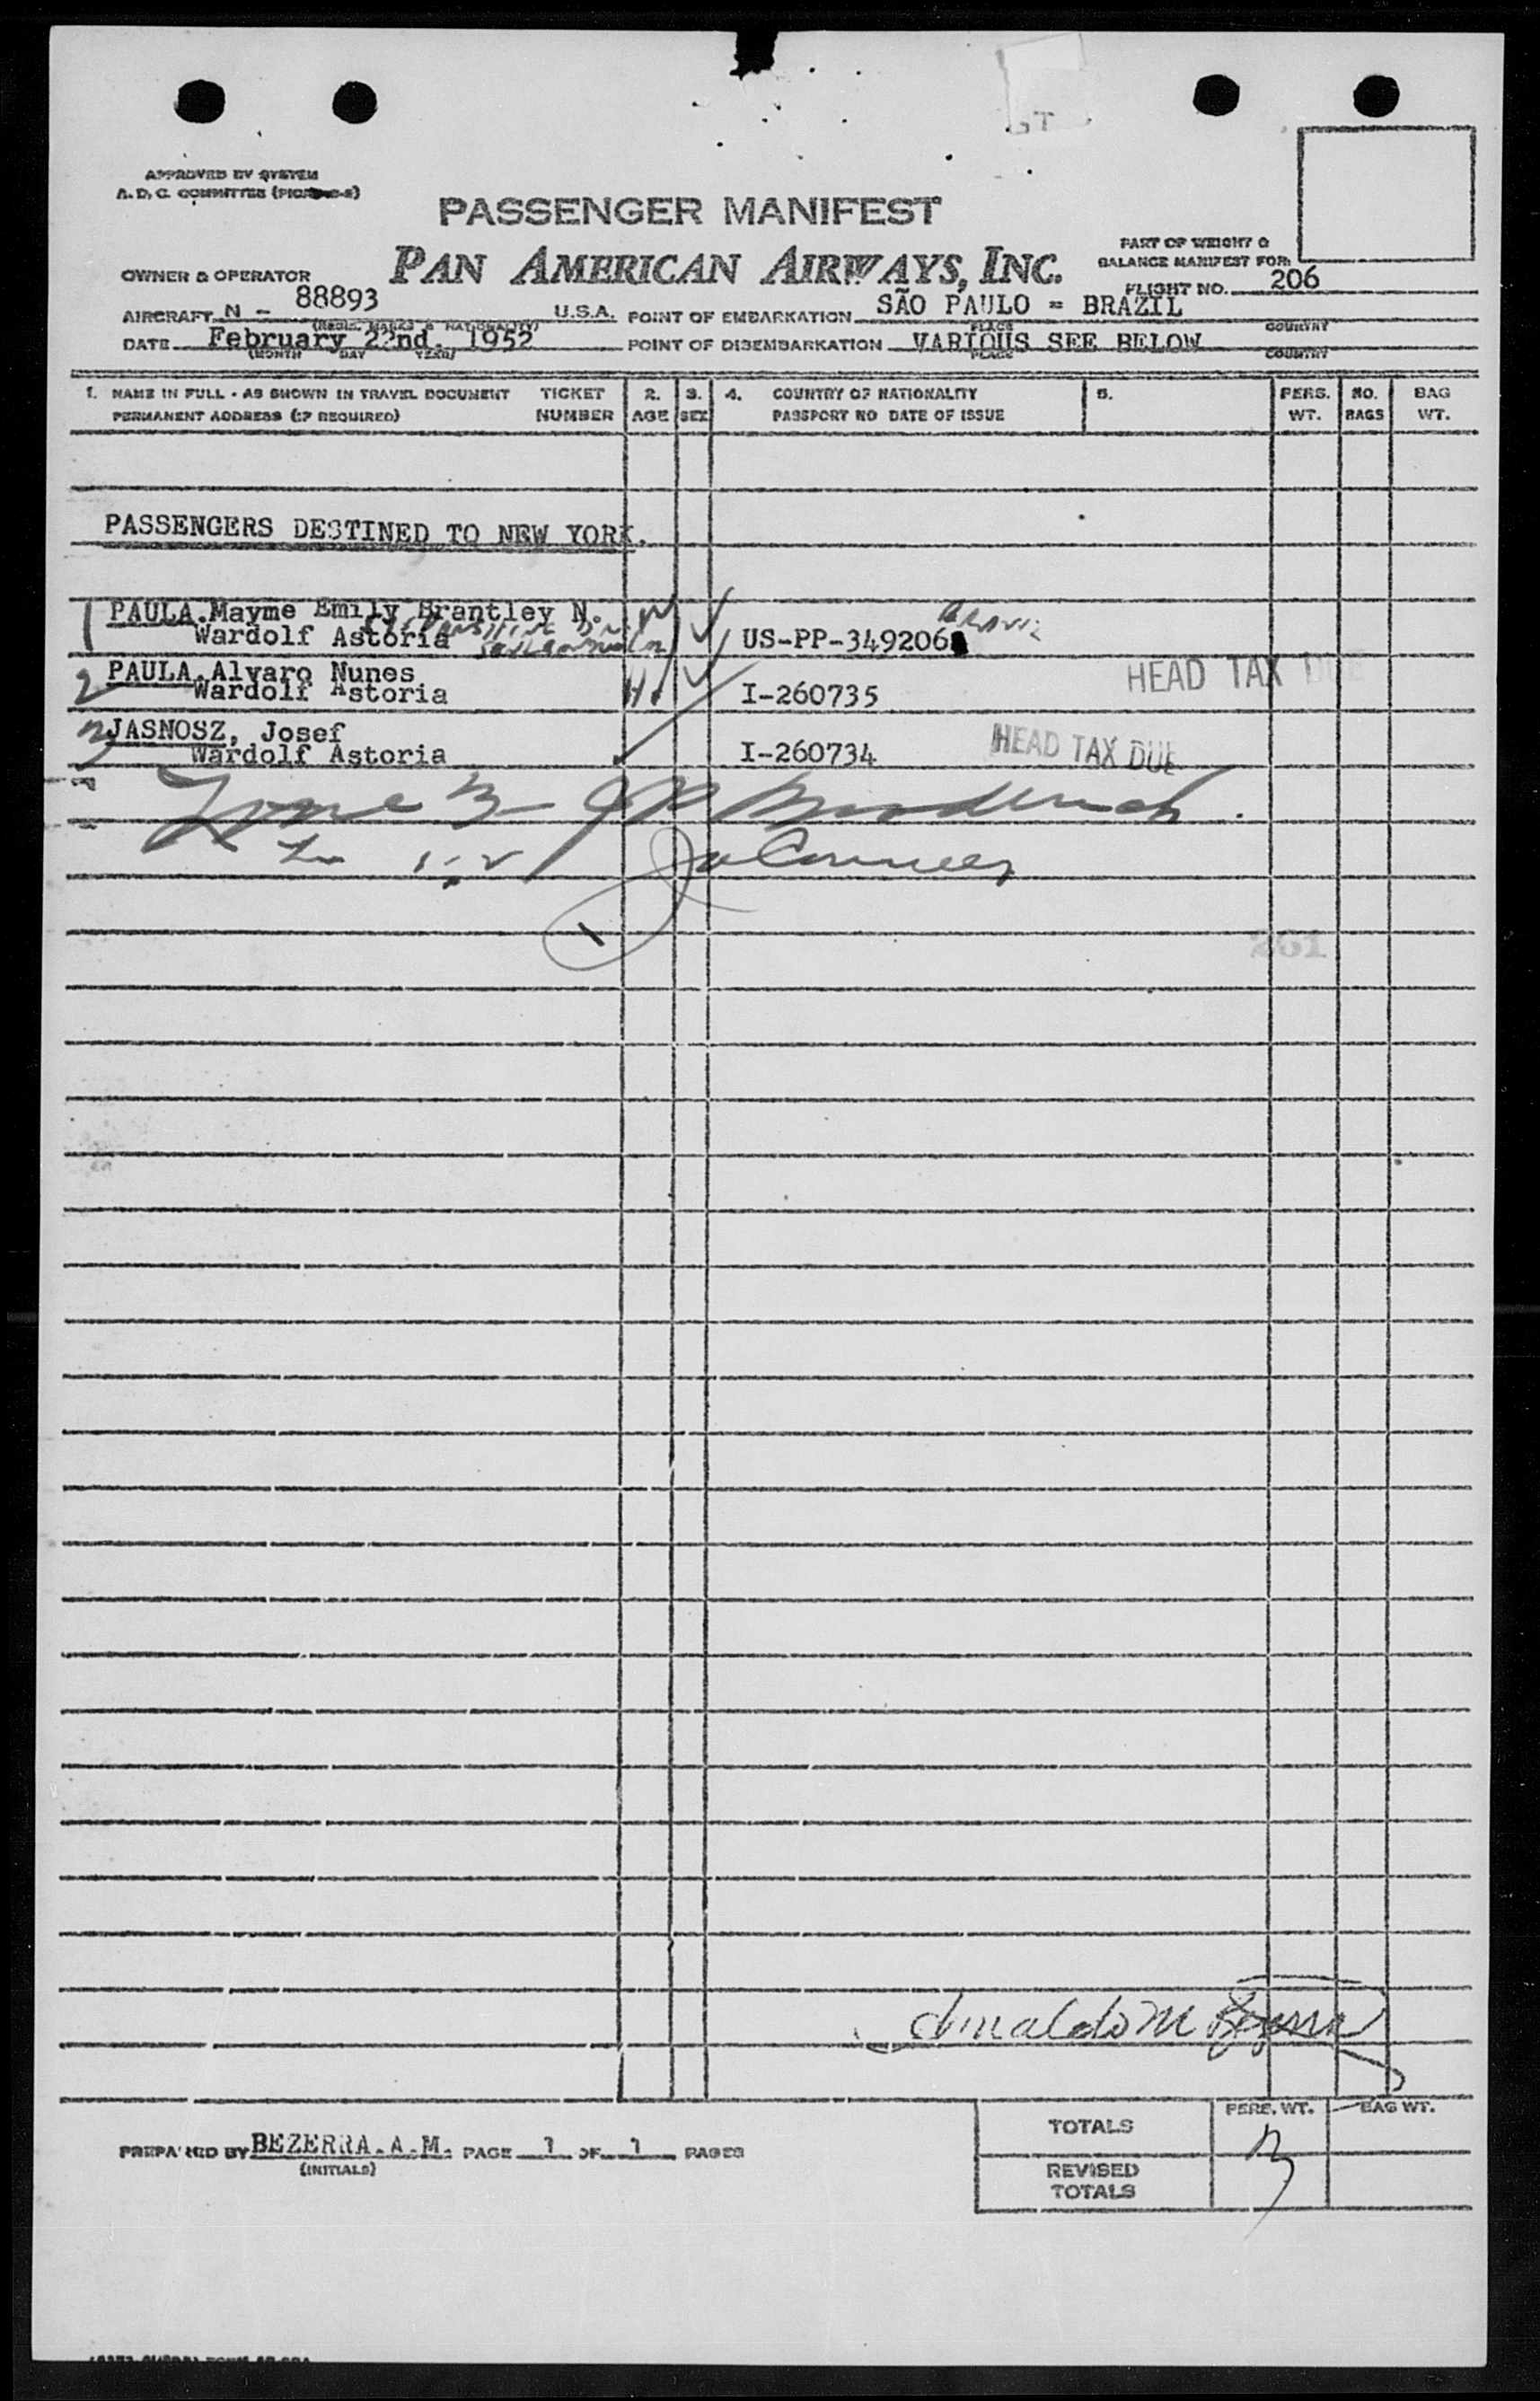 APPROVED BY SYSTEM
A.D.C. COMMITTEE
PASSENGER MANIFEST
PAN AMERICAN AIRWAYS, INC.
PART OF WEIGHT &
BALANCE MANIFEST FOR:
OWNER & OPERATOR
FLIGHT NO. 206
AIRCRAFT N - 88893 U.S.A. POINT OF EMBARKATION SÃO PAULO = BRAZIL
(REGIS. MARKS & NATIONALITY) PLACE COUNTRY
DATE February 22nd. 1952 POINT OF DISEMBARKATION VARIOUS SEE BELOW
(MONTH DAY YEAR) PLACE COUNTRY
1. NAME IN FULL - AS SHOWN IN TRAVEL DOCUMENT TICKET 2. 3. 4. COUNTRY OF NATIONALITY 5. PERS. NO. BAG
PERMANENT ADDRESS (IF REQUIRED) NUMBER AGE SEX PASSPORT NO DATE OF ISSUE WT. BAGS WT.
PASSENGERS DESTINED TO NEW YORK.
1 PAULA.Mayme Emily Brantley N.
Wardolf Astoria US-PP-349206
2 PAULA.Alvaro Nunes HEAD TAX DUE
Wardolf Astoria I-260735
3 JASNOSZ, Josef HEAD TAX DUE
Wardolf Astoria I-260734
261
PREPARED BY BEZERRA.A.M. PAGE 1 OF 1 PAGES
(INITIALS)
TOTALS PERS. WT. BAG WT.
3
REVISED
TOTALS